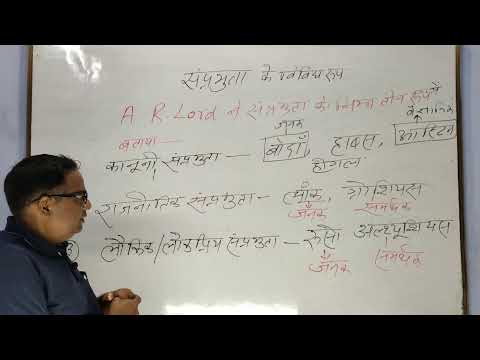 संप्रभुता के विविध रूप
A R. Lord ने संप्रभुता के निम्न तीन रूप
बताया -
जनक
वैज्ञानिक
कानूनी संप्रभुता - बोदाँ, हाब्स, आस्टिन
हीगल
राजनीतिक संप्रभुता - लॉक, ग्रोशियस
जनक समर्थक
लौकिक/लोकप्रिय संप्रभुता - रूसो अल्थूशियस
जनक समर्थक